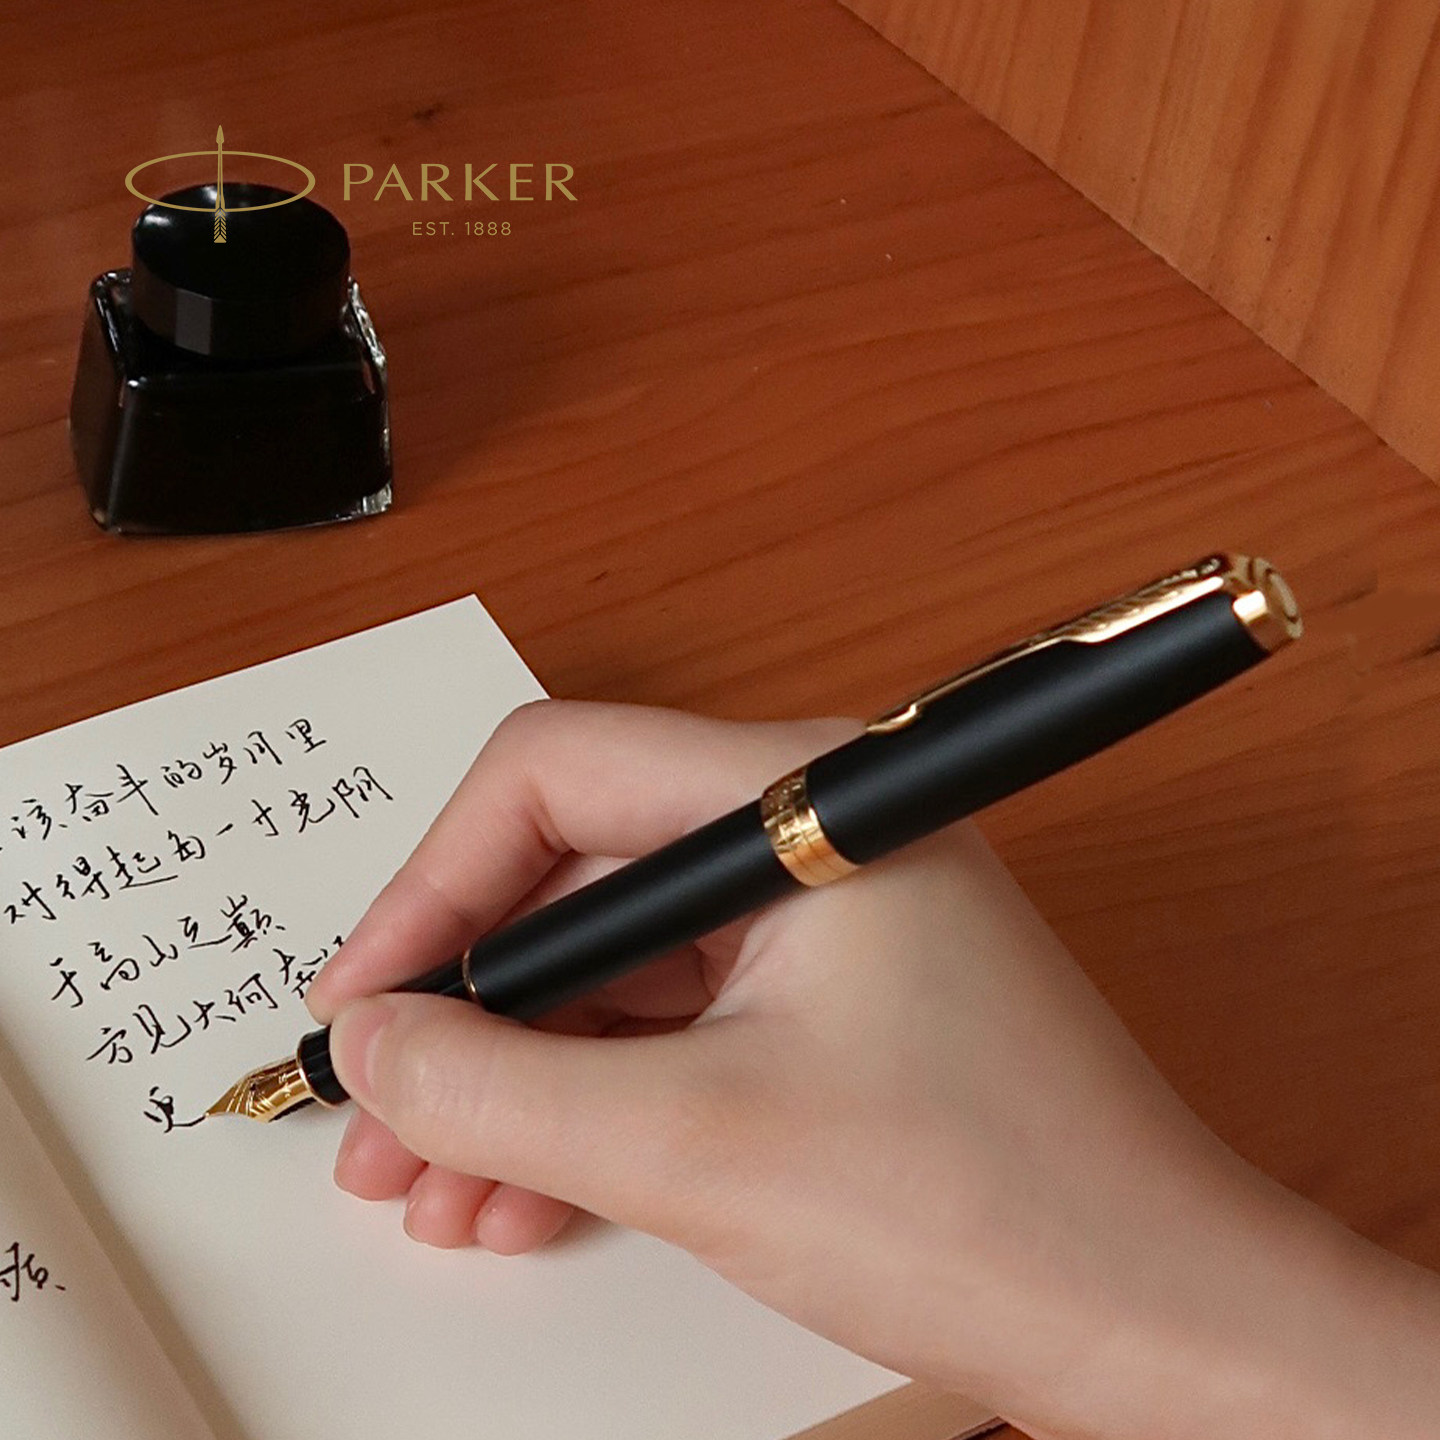 PARKER
EST. 1888
该奋斗的岁月里
对得起每一寸光阴
于高山之巅
方见大河奔
更